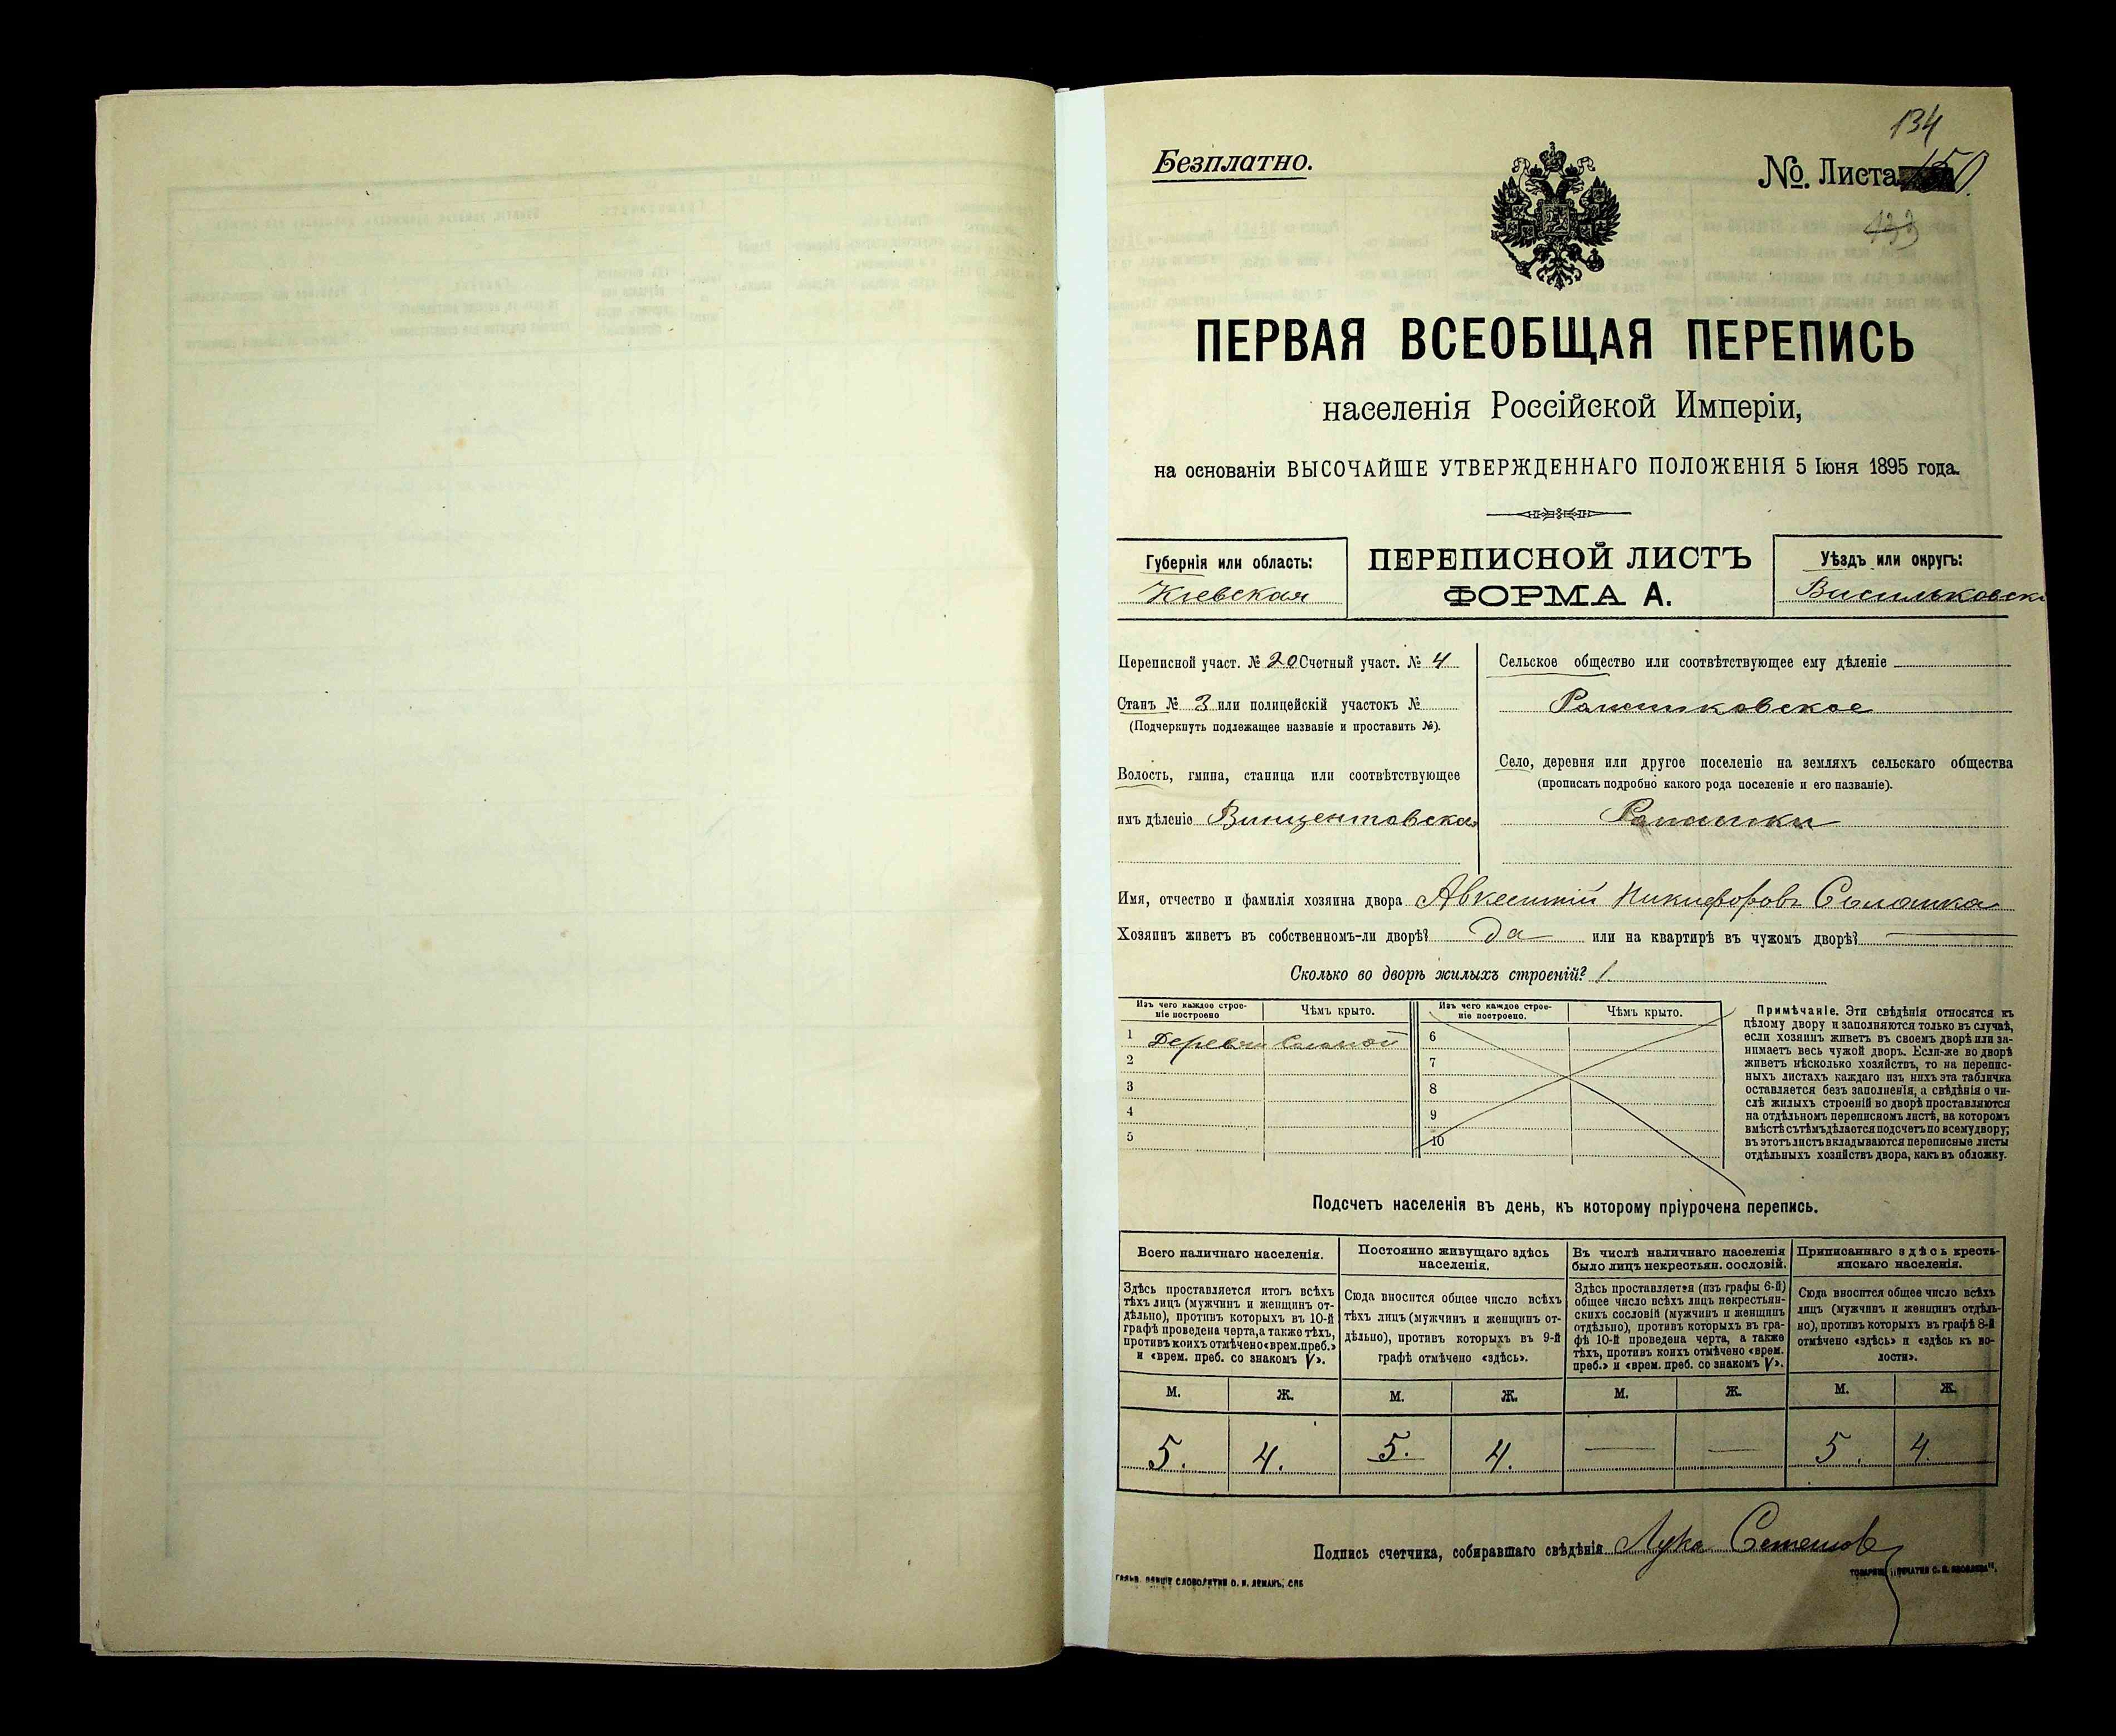 134
Безплатно.
№ Листа 150.
133
ПЕРВАЯ ВСЕОБЩАЯ ПЕРЕПИСЬ
населенія Россійской Имперіи,
на основаніи ВЫСОЧАЙШЕ УТВЕРЖДЕННАГО ПОЛОЖЕНІЯ 5 Іюня 1895 года.
Губернія или область:
Кіевская
ПЕРЕПИСНОЙ ЛИСТЪ
ФОРМА А.
Уѣздъ или округъ:
Васильковскі
Переписной участ. № 20 Счетный участ. № 4
Станъ № 3 или полицейскій участокъ №
(Подчеркнуть подлежащее названіе и проставить №).
Волость, гмина, станица или соотвѣтствующее
имъ дѣленіе Винцентовская
Сельское общество или соотвѣтствующее ему дѣленіе
Село, деревня или другое поселеніе на земляхъ сельскаго общества
(прописать подробно какого рода поселеніе и его названіе).
Имя, отчество и фамилія хозяина двора Авксентій Никифоровъ
Хозяинъ живетъ въ собственномъ-ли дворѣ? да или на квартирѣ въ чужомъ дворѣ? —
Сколько во дворѣ жилыхъ строеній? 1
Изъ чего каждое строе-
ніе построено
Чѣмъ крыто.
Изъ чего каждое строе-
ніе построено.
Чѣмъ крыто.
1 Дерева Соломой
2
3
4
5
6
7
8
9
10
Примѣчаніе. Эти свѣдѣнія относятся къ
цѣлому двору и заполняются только въ случаѣ,
если хозяинъ живетъ въ своемъ дворѣ или за-
нимаетъ весь чужой дворъ. Если-же во дворѣ
живетъ нѣсколько хозяйствъ, то на перепис-
ныхъ листахъ каждаго изъ нихъ эта табличка
оставляется безъ заполненія, а свѣдѣнія о чи-
слѣ жилыхъ строеній во дворѣ проставляются
на отдѣльномъ переписномъ листѣ, на которомъ
вмѣстѣ съ тѣмъ дѣлается подсчетъ по всему двору;
въ этотъ листъ вкладываются переписные листы
отдѣльныхъ хозяйствъ двора, какъ въ обложку.
Подсчетъ населенія въ день, къ которому пріурочена перепись.
Всего наличнаго населенія.
Здѣсь проставляется итогъ всѣхъ
тѣхъ лицъ (мужчинъ и женщинъ от-
дѣльно), противъ которыхъ въ 10-й
графѣ проведена черта, а также тѣхъ,
противъ коихъ отмѣчено «врем. преб.»
и «врем. преб. со знакомъ V».
Постоянно живущаго здѣсь
населенія.
Сюда вносится общее число всѣхъ
тѣхъ лицъ (мужчинъ и женщинъ от-
дѣльно), противъ которыхъ въ 9-й
графѣ отмѣчено «здѣсь».
Въ числѣ наличнаго населенія
было лицъ некрестьян. сословій.
Здѣсь проставляется (изъ графы 6-й)
общее число всѣхъ лицъ некрестьян-
скихъ сословій (мужчинъ и женщинъ
отдѣльно), противъ которыхъ въ гра-
фѣ 10-й проведена черта, а также
тѣхъ, противъ коихъ отмѣчено «врем.
преб.» и «врем. преб. со знакомъ V».
Приписаннаго здѣсь кресть-
янскаго населенія.
Сюда вносится общее число всѣхъ
лицъ (мужчинъ и женщинъ отдѣль-
но), противъ которыхъ въ графѣ 8-й
отмѣчено «здѣсь» и «здѣсь къ во-
лости».
М. Ж. М. Ж. М. Ж. М. Ж.
5. 4. 5. 4. — — 5. 4.
Подпись счетчика, собиравшаго свѣдѣнія Лука